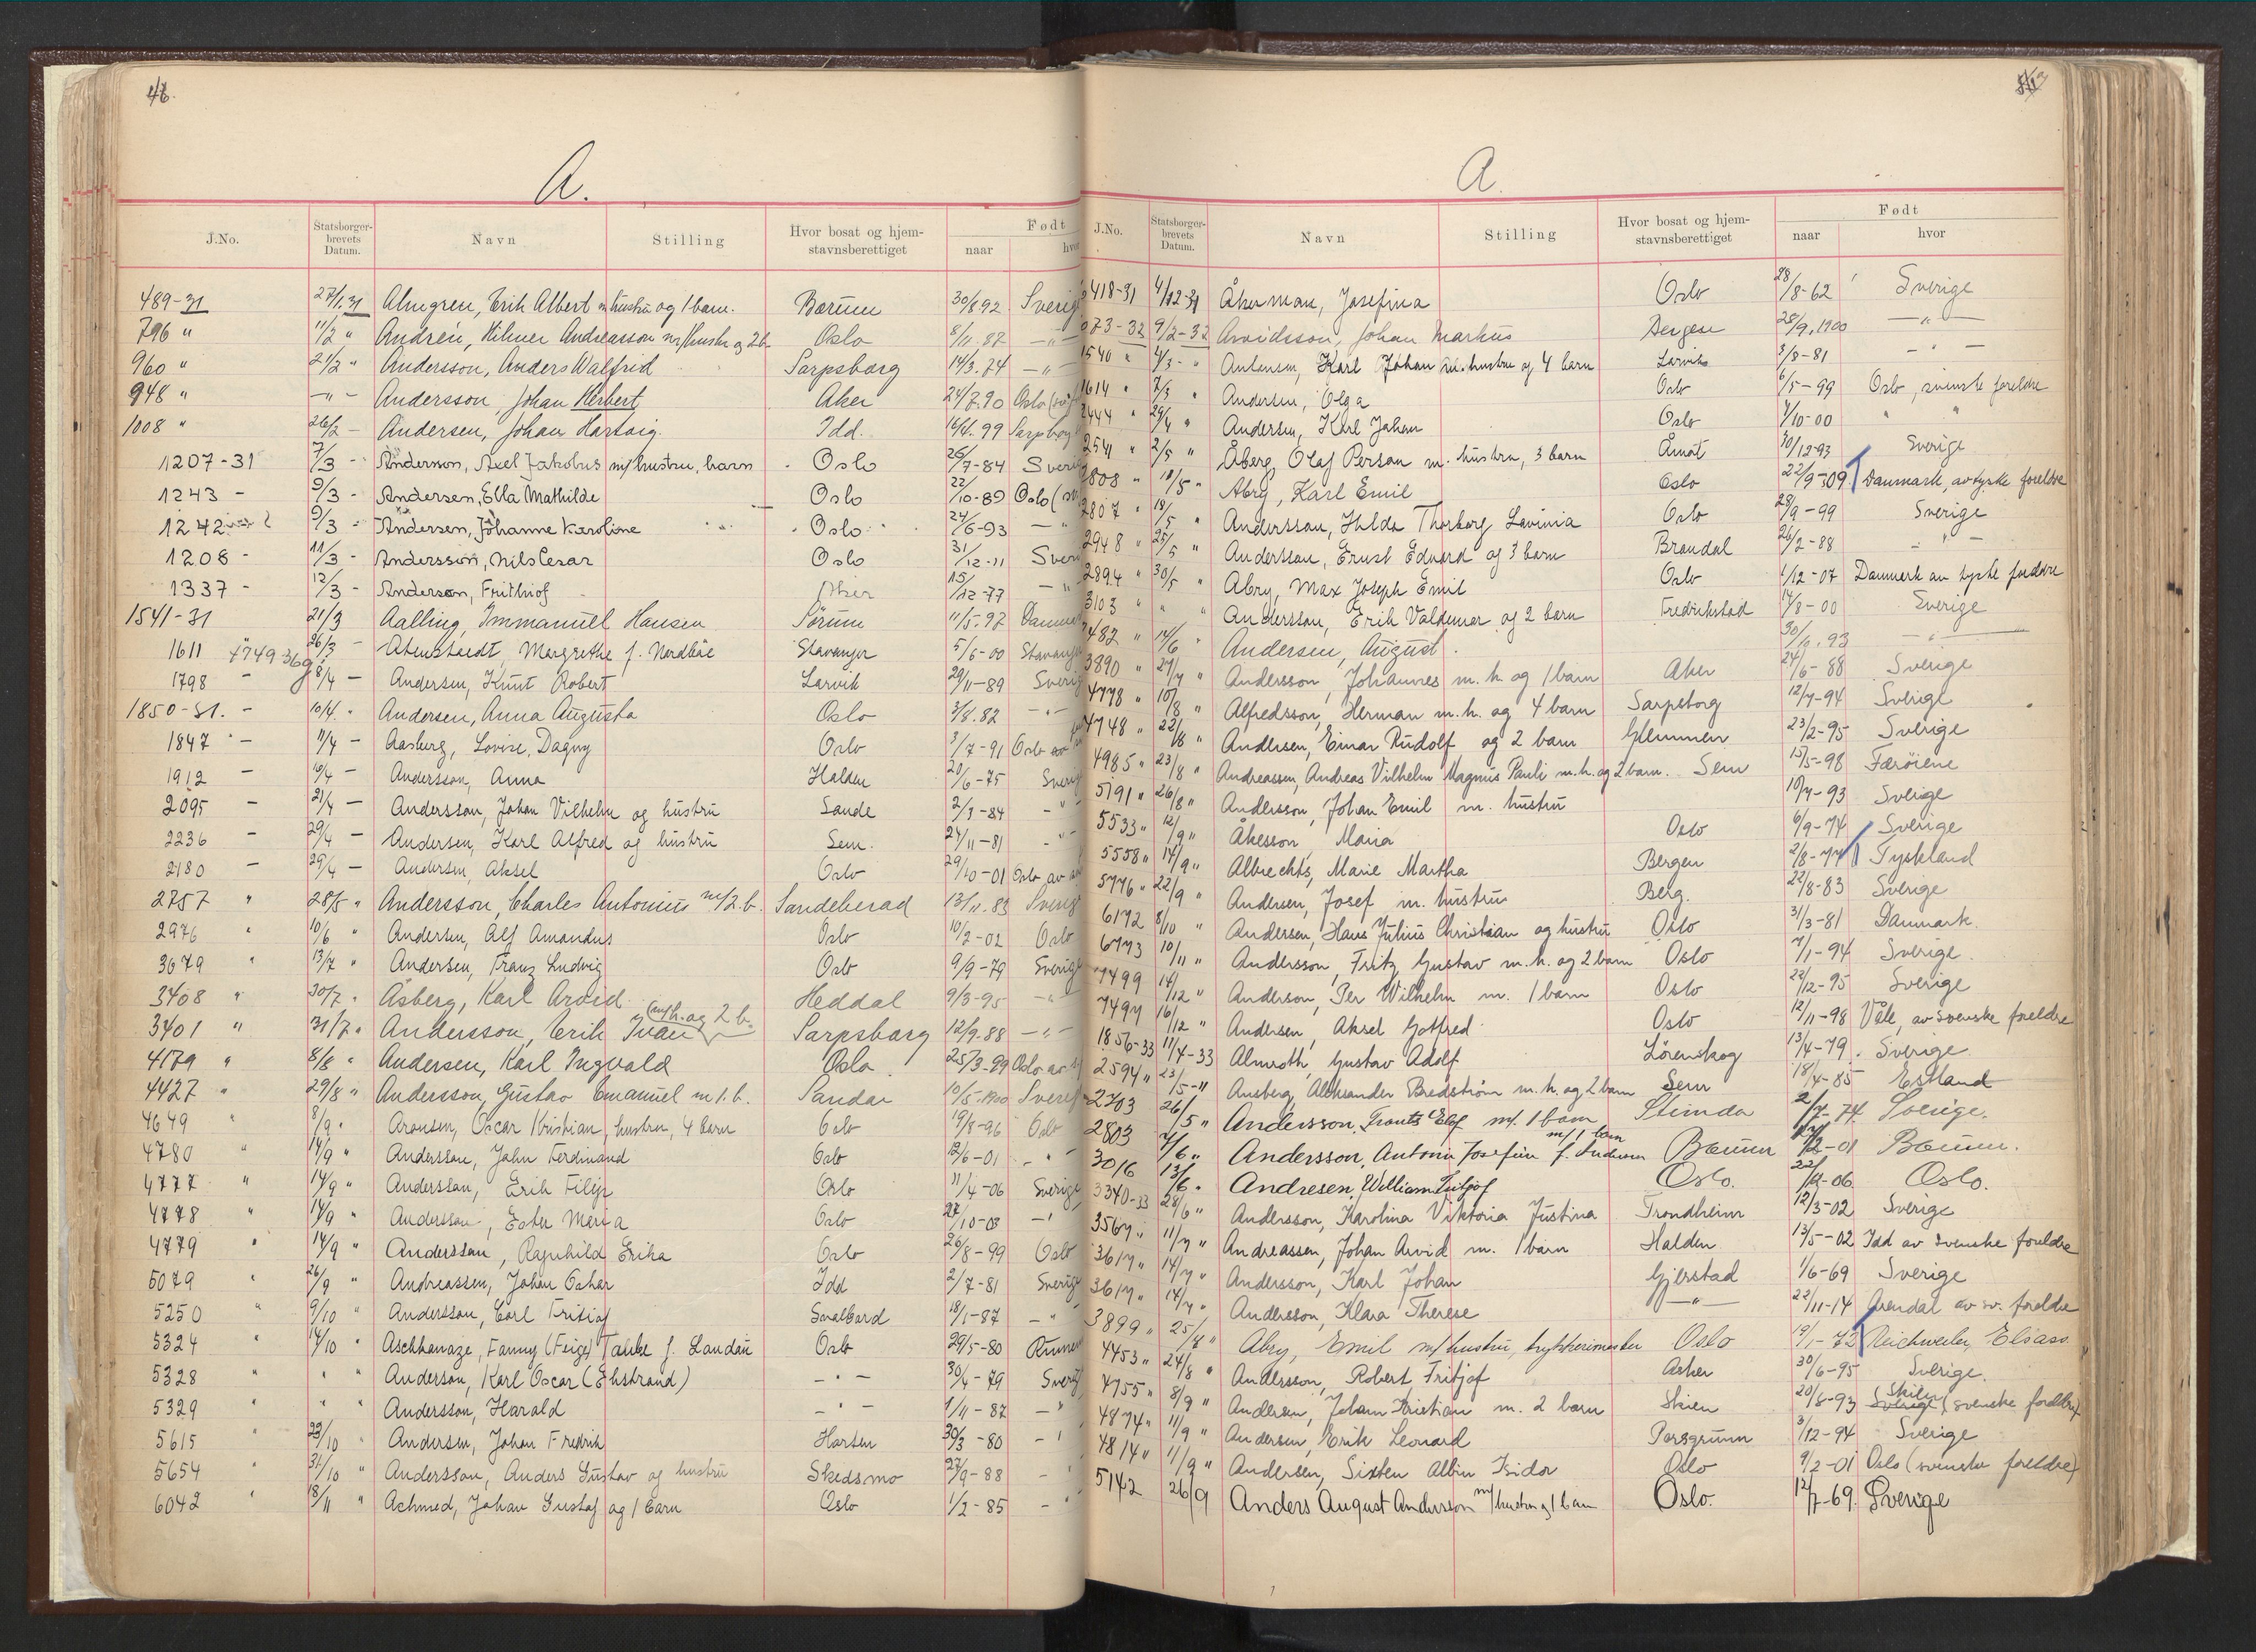 48.
A.
J.No. Statsborger-brevets Datum. Navn Stilling Hvor bosat og hjem-stavnsberettiget Født naar hvor
489-31 27/1 31 Almgren, Erik Albert m hustru og 1 barn. Bærum 30/8 92 Sverig
796 " 11/2 " Andrén, Hilmer Andreasson m/hustru og 2 b. Oslo 8/11. 87 — " —
960 " 21/2 " Andersson, Anders Walfrid Sarpsborg 14/3.74 — " —
948 " — " — Andersson, Johan Herbert Aker 24/7.90 Oslo
1008 " 26/2 — Andersen, Johan Hartvig. Idd. 16/11.99 Sarpborg
1207-31 7/3 - Andersson, Axel Jakobus m/hustru, barn Oslo 26/7-84 Sveri
1243 - 9/3 - Andersen, Ella Mathilde Oslo 22/10-89 Oslo (sv
1242 - 9/3 - Andersen, Johanne Karoline Oslo 24/6-93 — "
1208 - 11/3 - Andersson, Nils Cesar Oslo 31/12-11 Sveri
1337 - 12/3 - Anderson, Frithiof Aker 15/12-77 — "
1541-31 21/3 Aalling, Immanuel Hansen Sørum 11/5-97 Danmar
1611 4749-36 26/3 — Abenstaedt, Margrethe f. Nordbøe Stavanger 5/6-00 Stavange
1798 - 8/4 — Andersen, Knut Robert Larvik 29/11-89 Sverig
1850-31. - 10/4. " Andersen, Anna Augusta Oslo 3/8.82 — " —
1847 - 11/4 — Aasberg, Lovise, Dagny Oslo 3/7-91 Oslo av
1912 — 16/4 — Andersson, Anna Halden 20/6-75 Sverig
2095 — 21/4 — Andersson, Johan Vilhelm og hustru Sande 2/3-84 — " —
2236 — 29/4 — Andersen, Karl Alfred og hustru Sem. 24/11-81 - "
2180 — 29/4 — Andersen, Aksel Oslo 29/10-01 Oslo av
2757 " 28/5 " Andersson, Charles Antonius m/2.b. Sandeherad 13/11.83 Sverig
2976 " 10/6 " Andersen, Alf Amandus Oslo 10/2-02 Oslo
3679 " 13/7 " Andersen, Franz Ludvig Oslo 9/9-79 Sverige
3408 " 30/7 " Åsberg, Karl Arvid Heddal 9/3-95 — " —
3401 " 31/7 " Andersson, Erik Ivan (m/h. og 2 b. Sarpsborg 12/9.88 — " —
4179 " 8/8 " Andersen, Karl Ingvald Oslo 25/3-99 Oslo av
4427 " 29/8 " Andersson, Gustav Emanuel m 1.b. Sandar 10/5-1900 Sverig
4649 " 8/9 " Aronsen, Oscar Kristian, hustru, 4 barn Oslo 19/8-96 Oslo
4780 " 14/9 " Andersson, John Ferdinand Oslo 12/6-01 - " -
4777 " 14/9 " Andersson, Erik Filip Oslo 11/4-06 Sverige
4778 " 14/9 " Andersson, Ester Maria Oslo 27/10-03 — '
4779 " 14/9 " Andersson, Ragnhild Erika Oslo 26/8-99 Oslo
5079 " 26/9 " Andreassen, Johan Oskar Idd 2/7-81 Sverige
5250 " 9/10 " Andersson, Carl Fritiof Svalbard 18/1-87 — "
5324 " 14/10 " Aschkanaze, Fanny (Feige) Taube f. Landau Oslo 29/5-80 Rumen
5328 " " " Anderson, Karl Oscar (Ehstrand) — " — 30/4-79 Sverig
5329 " " " Andersson, Harald — " — 1/11-87 — "
5615 " 23/10 " Andersen, Johan Fredrik Horten 30/3-80 — '
5654 " 31/10 " Andersson, Anders Gustav og hustru Skedsmo 27/9-88 - "
6042 " 18/11 " Achmed, Johan Gustaf og 1 barn Oslo 1/2-85 - "
A.
J.No. Statsborger-brevets Datum. Navn Stilling Hvor bosat og hjem-stavnsberettiget Født naar hvor
418-31 4/12-31 Åkerman, Josefina Oslo 28/8-62 Sverige
073-32 9/2-32 Arvidsson, Johan Markus Bergen 28/9.1900 — " —
1540 " 4/3- " Antonsen, Karl Johan m. hustru og 4 barn Larvik 3/8-81 — " —
1614 " 7/3 " Andersen, Olga Oslo 6/5-99 Oslo, svenske foreldre
2444 " 29/4 " Andersen, Karl Johan Oslo 4/10-00 " "
2541 " 2/5 " Åberg, Olaf Persan m. hustru, 3 barn Åmot 30/12-93 Sverige
2808 " 18/5 " Abry, Karl Emil Oslo 22/9-09 Danmark, av tyske foreldre
2807 " 18/5 " Andersson, Hulda Thorborg Lavinia Oslo 28/9-99 Sverige
2948 " 25/5 " Andersson, Ernst Edvard og 3 barn Brandal 26/2-88 - " -
2894 " 30/5 " Abry, Max Joseph Emil Oslo 1/12-07 Danmark av tyske foreldre
3103 " " " Andersson, Erik Valdemar og 2 barn Fredrikstad 14/8-00 Sverige
3482 " 14/6 " Andersen, August. 30/10.93 — " —
3890 " 27/7 " Andersson, Johannes m. h. og 1 barn Aker 24/6-88 Sverige
4778 " 10/8 " Alfredsson, Herman m.h. og 4 barn Sarpsborg 12/7-94 Sverige
4748 " 22/8 " Andersen, Einar Rudolf og 2 barn Glemmen 23/2-95 Sverige
4985 " 23/8 " Andreassen, Andreas Vilhelm Magnus Pauli m.h. og 2 barn. Sem 15/5-98 Færøiene
5191 " 26/8 " Andersson, Johan Emil m. hustru 10/7-93 Sverige
5533 " 12/9 " Åkesson, Maria Oslo 6/9-74 Sverige
5558 " 14/9 " Albrechts, Marie Martha Bergen 2/8-77 Tyskland
5776 " 22/9 " Andersen, Josef m. hustru Berg. 22/8-83 Sverige
6172 8/10 " Andersen, Hans Julius Christian og hustru Oslo 31/3-81 Danmark.
6773 10/11 " Andersson, Fritz Gustav m. h. og 2 barn Oslo 7/1-94 Sverige.
7499 14/12 " Anderson, Per Wilhelm m. 1 barn Oslo 22/12-95 Sverige
7497 16/12 " Andersen, Aksel Gotfred Oslo 12/11-98 Våle, av svenske foreldre
1856-33 11/4-33 Almroth, Gustav Adolf Lørenskog 13/4-79. Sverige
2594 " 23/5-" Ansberg, Aleksander Bredstrøm m. h. og 2 barn Sem 18/4-85 Estland
2703 26/5 " Andersson, Frants Elof m/. 1 barn 2/7-74 Sverige.
2803 7/6 " Andersson, Antonie Josefine f. Andersen m/1 barn Bærum /2-01 Bærum.
3016 13/6. Andresen, William Fritjof Oslo. 22/12-06 Oslo.
3340-33 28/6 " Andersson, Karolina Viktoria Justina Trondheim 12/3-02 Sverige
3567 " 11/7 " Andreassen, Johan Arvid m. 1 barn Halden 13/5-02 Idd av svenske foreldre
3617 " 14/7 " Andersson, Karl Johan Gjerstad 1/6-69 Sverige
3617 " 14/7 " Andersson, Klara Therese — " — 22/11-14 Arendal av sv. foreldre
3899 " 25/7 " Abry, Emil m/hustru, trykkerimester Oslo 19/1-72 Reichweiler, Elsass.
4453 " 24/8 " Andersson, Robert Fritjof Asker 30/6-95 Sverige.
4755 " 8/9 " Andersen, Johan Kristian m. 2 barn Skien 20/8-93 Sverige Skien (svenske foreldre)
4874 " 11/9 " Andersen, Erik Leonard Porsgrunn 3/12-94 Sverige
4814 " 11/9 " Andersen, Sixten Albin Isidor Oslo 9/2-01 Oslo (svenske foreldre)
5142 26/9 Anders August Andersson m/hustru og 1 barn Oslo. 12/7-69. Sverige